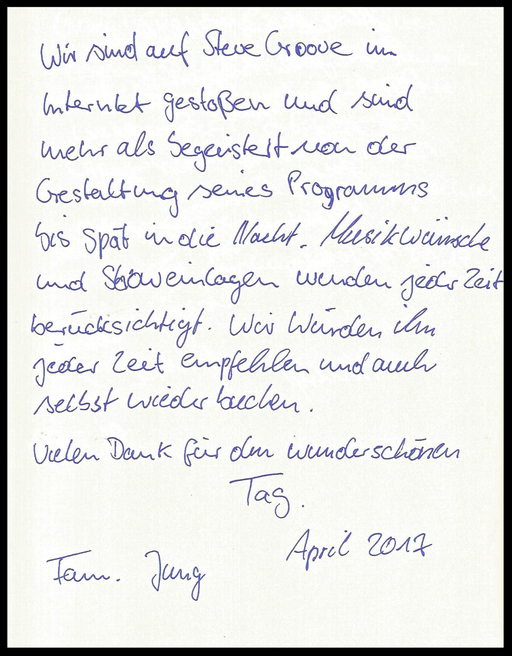 Wir sind auf Steve Groove im
Internet gestoßen und sind
mehr als begeistert von der
Gestaltung seines Programms
bis spät in die Nacht. Musikwünsche
und Showeinlagen wurden jeder Zeit
berücksichtigt. Wir würden ihn
jeder Zeit empfehlen und auch
selbst wieder buchen.
Vielen Dank für den wunderschönen
Tag.
April 2017
Fam. Jung